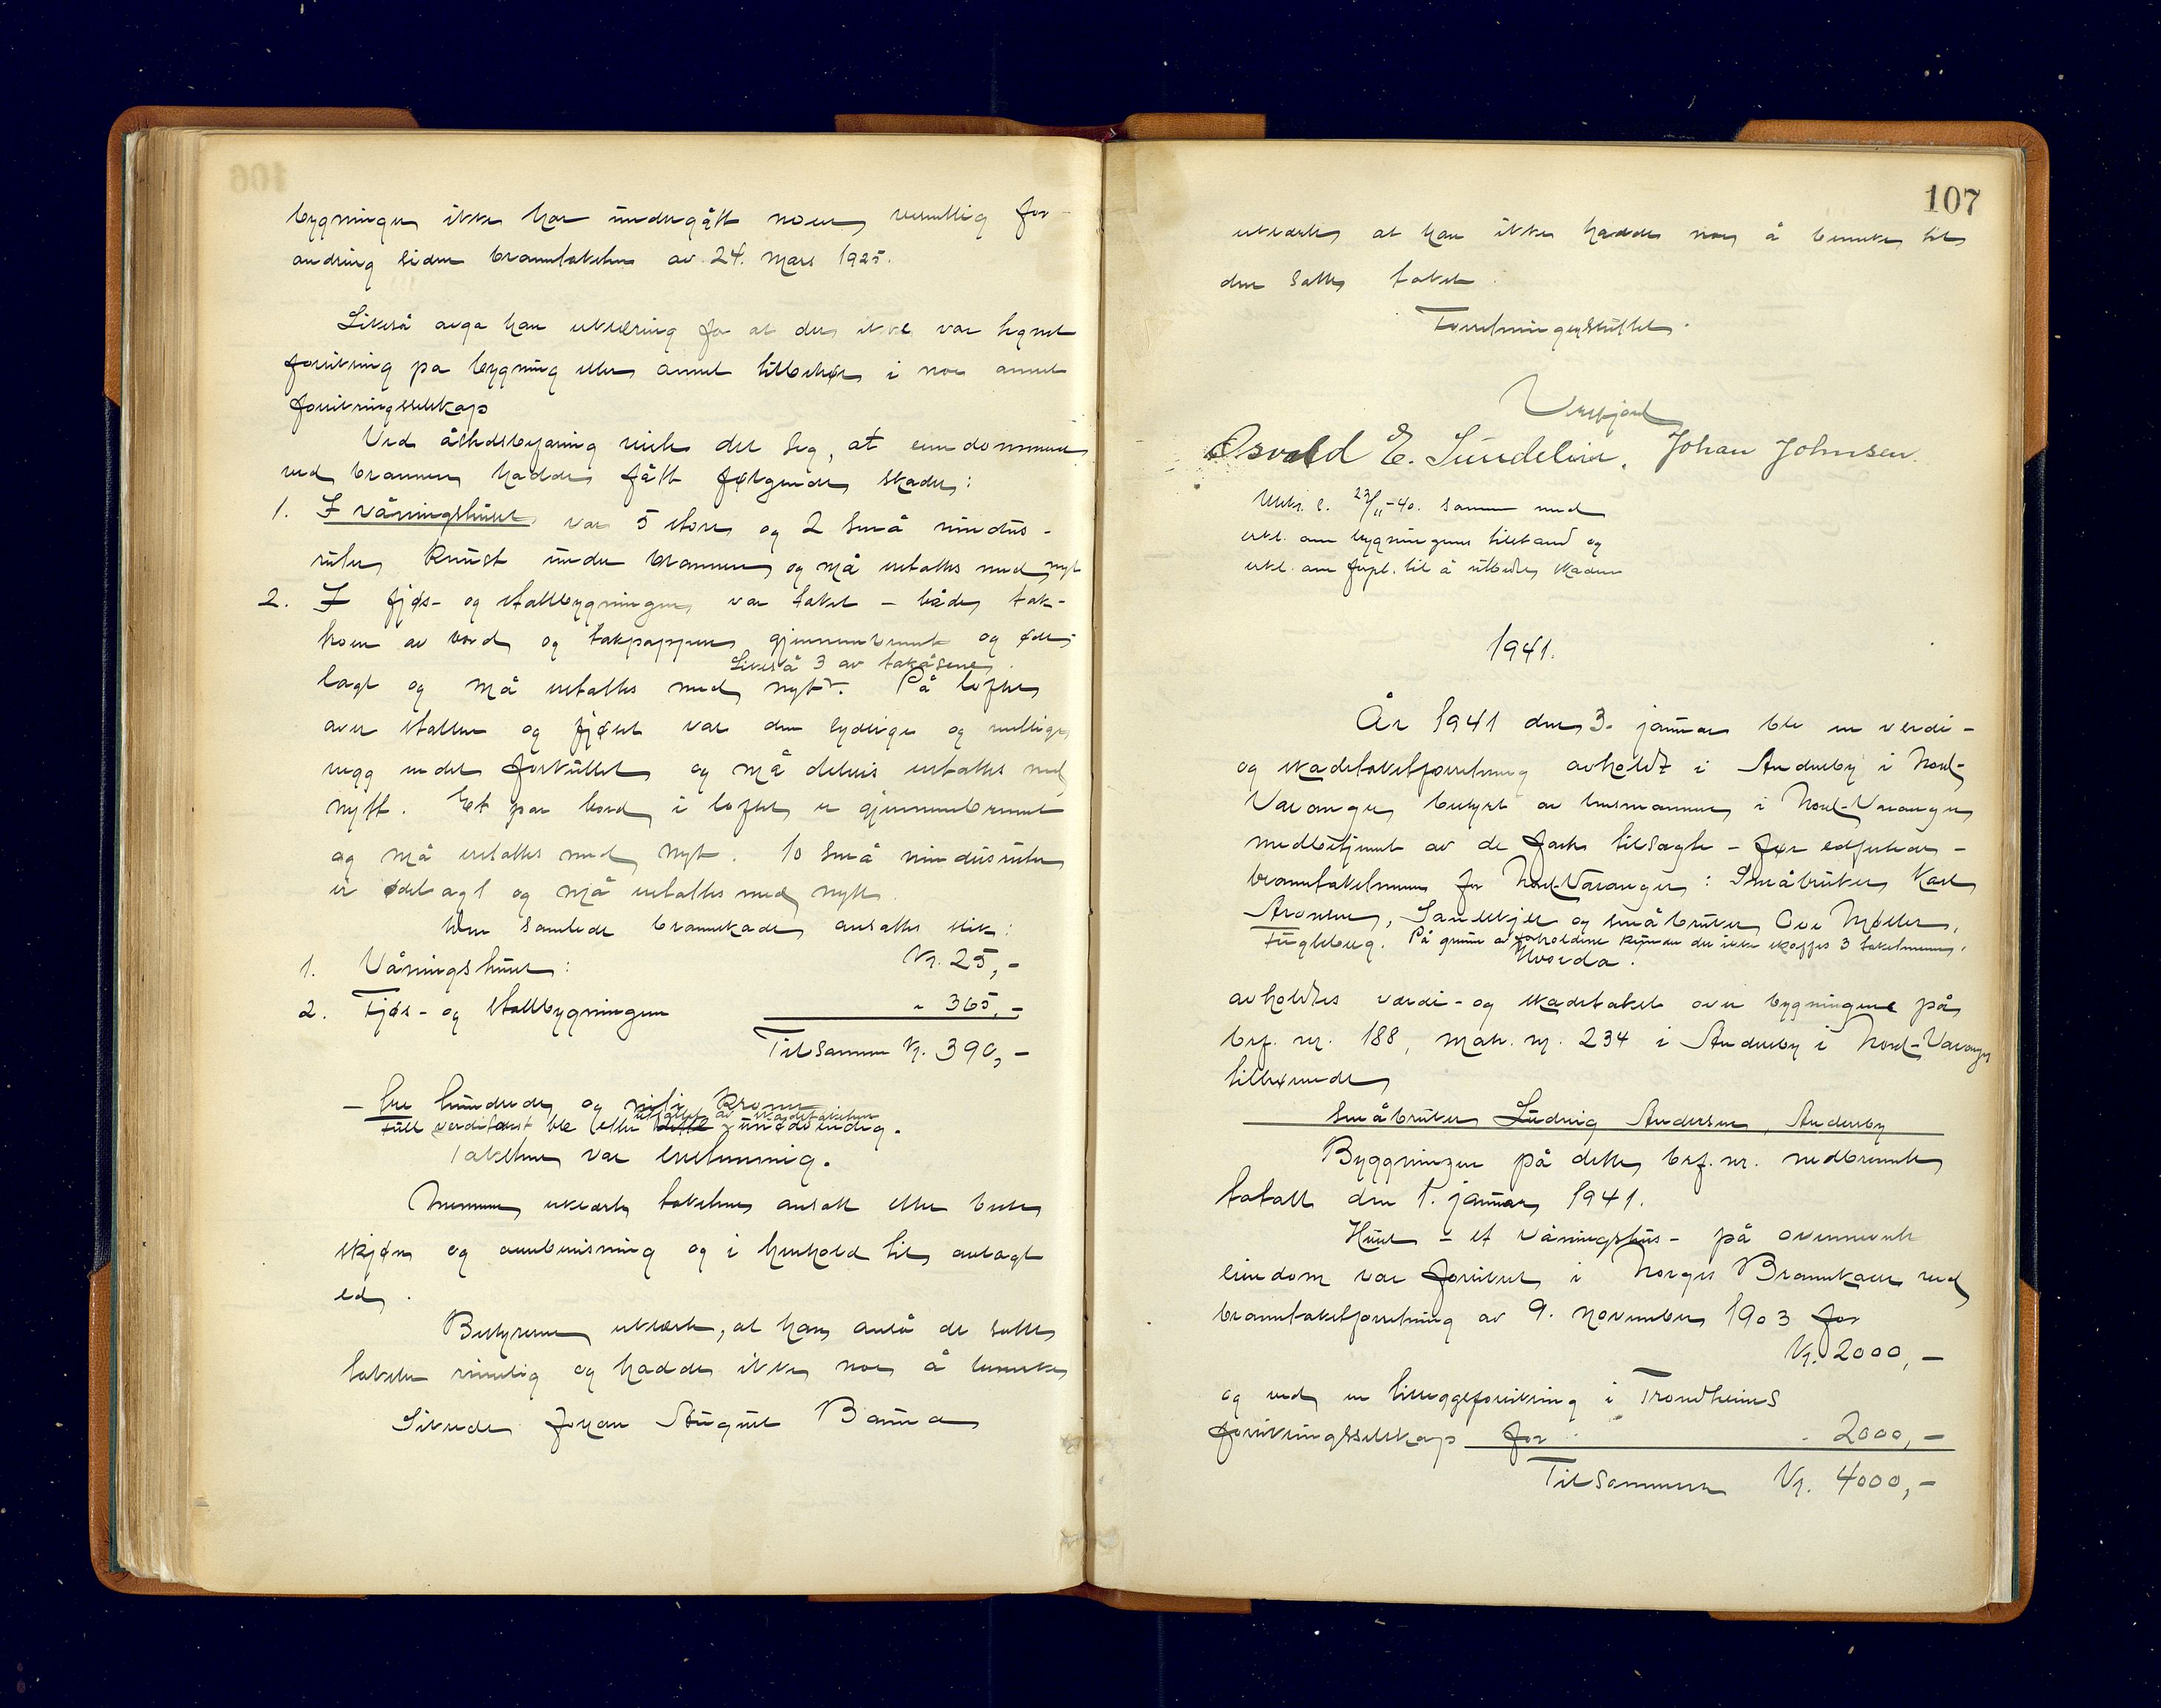 bygningen ikke har undergått noen vesentlig for-
andring siden branntaksten av 24. mars 1925.
Likeså avga han erklæring for at der ikke var tegnet
forsikring på bygning eller annet tilbehør i noe annet
forsikringsselskap
Ved åstedsbefaring viste det seg, at eiendommen
ved brannen hadde fått følgende skader:
1. I våningshuset var 5 store og 2 små vindus-
ruter knust under brannen og må erstattes med nytt
2. I fjøs- og stallbygningen var taket - både tak-
troen av bord og takpappen gjennembrent og øde-
Likeså 3 av takåsene.
lagt og må erstattes med nytt. På loftet
over stallen og fjøset var den sydlige og vestlige
vegg endel forkullet og må delvis erstattes med
nytt. Et par bord i loftet er gjennembrent
og må erstattes med nytt. 10 små vindusruter
er ødelagt og må erstattes med nytt.
Den samlede brannskade ansattes slik:
1. Våningshuset: Kr. 25,-
2. Fjøs- og stallbygningen " 365,-
Tilsammen Kr. 390,-
- tre hundrede og nitti kroner
resultatet av skadetaksten
Full verditakst ble etter dette unødvendig.
Taksten var enstemmig.
Mennene erklærte taksten ansatt etter beste
skjønn og overbevisning og i henhold til avlagt
ed.
Bestyreren erklærte, at han anså de satte
takster rimelig og hadde ikke noe å bemerke
Skadelidte Johan August Banna
106
107
erklærte at han ikke hadde noe å bemerke til
den satte takst.
Forretningen sluttet.
Vestfjord
Osvald E. Sundelin. Johan Johnsen.
Utskr. s. 23/11-40. sammen med
erkl. om bygningens tilstand og
erkl. om forpl. til å utbedre skaden
1941.
År 1941 den 3. januar ble en verdi-
og skadetakstforretning avholdt i Andersby i Nord-
Varanger bestyrt av lensmannen i Nord-Varanger
medbetjent av de faste tilsagte - før edfestede -
branntakstmenn for Nord-Varanger: Småbruker Karl
Aronsen, Sandskjær og småbruker Ove Møller,
Fugleberg. På grunn av forholdene kunne der ikke skaffes 3 takstmenn.
Hvorda.
avholdtes verdi- og skadetakst over bygningene på
brf. nr. 188, matr. nr. 234 i Andersby i Nord-Varanger
tilhørende
småbruker Ludvig Andersen, Andersby
Byggningen på dette brf. nr. nedbrente
totalt den 1. januar 1941.
Huset - et våningshus - på ovennevnte
eiendom var forsikret i Norges Brannkasse ved
branntakstforretning av 9. november 1903 for
Kr. 2000,-
og ved en tilleggsforsikring i Trondheims
forsikringsselskap for " 2000,-
Tilsammen Kr. 4000,-